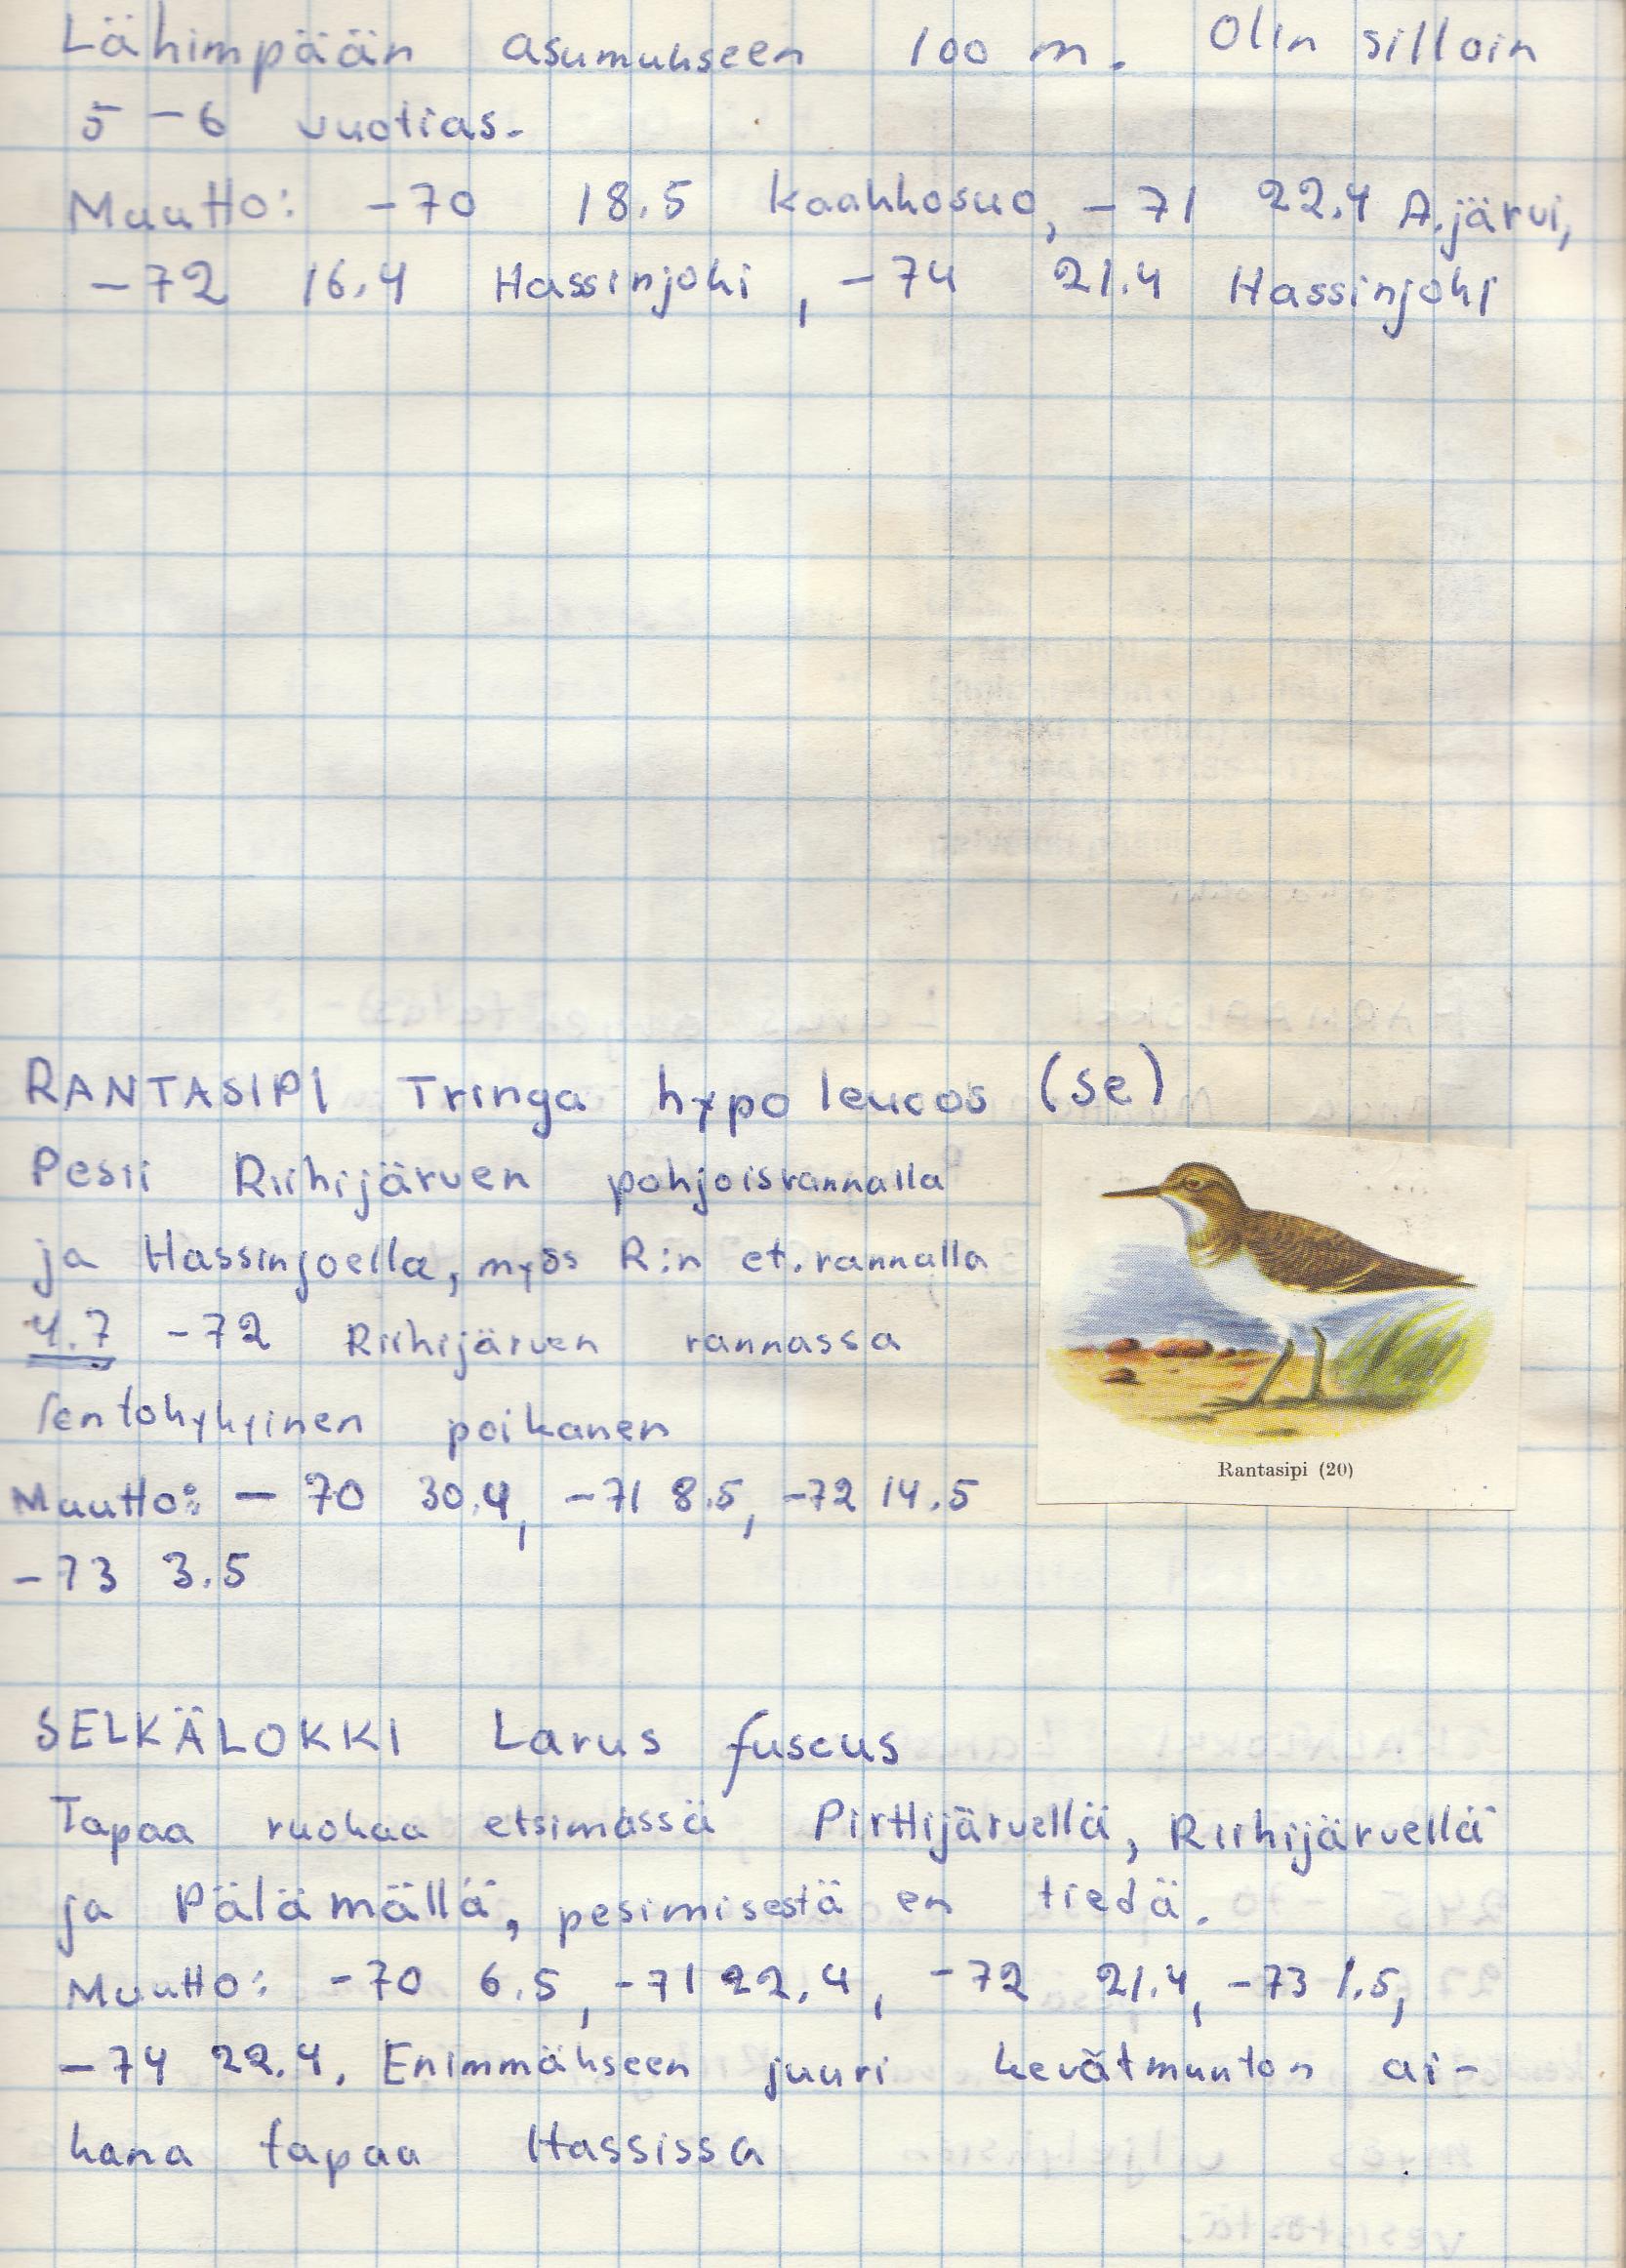 Lähimpään asumukseen 100 m. Olin silloin
5-6 vuotias.
Muutto: -70 18.5 Kaakkosuo, -71 22.4 A.järvi,
-72 16.4 Hassinjoki, -74 21.4 Hassinjoki
RANTASIPI Tringa hypoleucos (se)
Pesii Riihijärven pohjoisrannalla
ja Hassinjoella, myös R:n et.rannalla
4.7 -72 Riihijärven rannassa
lentokykyinen poikanen
Muutto: -70 30.4, -71 8.5, -72 14.5
-73 3.5
Rantasipi (20)
SELKÄLOKKI Larus fuscus
Tapaa ruokaa etsimässä Pirttijärvellä, Riihijärvellä
ja Pälämällä, pesimisestä en tiedä.
Muutto: -70 6.5, -71 22.4, -72 21.4, -73 1.5,
-74 22.4. Enimmäkseen juuri kevätmuuton ai-
kana tapaa Hassissa